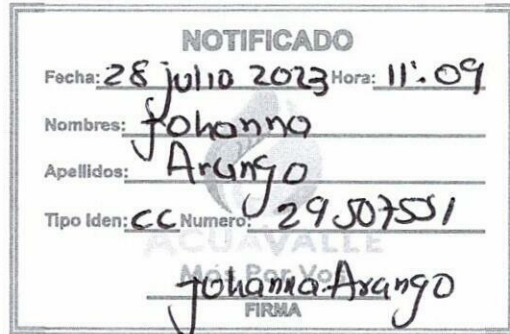 NOTIFICADO
Fecha: 28 julio 2023 Hora: 11:09
Nombres: Johanna
Apellidos: Arango
Tipo Iden: CC Numero: 29507551
ACUAVALLE
Más Por Vos
Johanna Arango
FIRMA